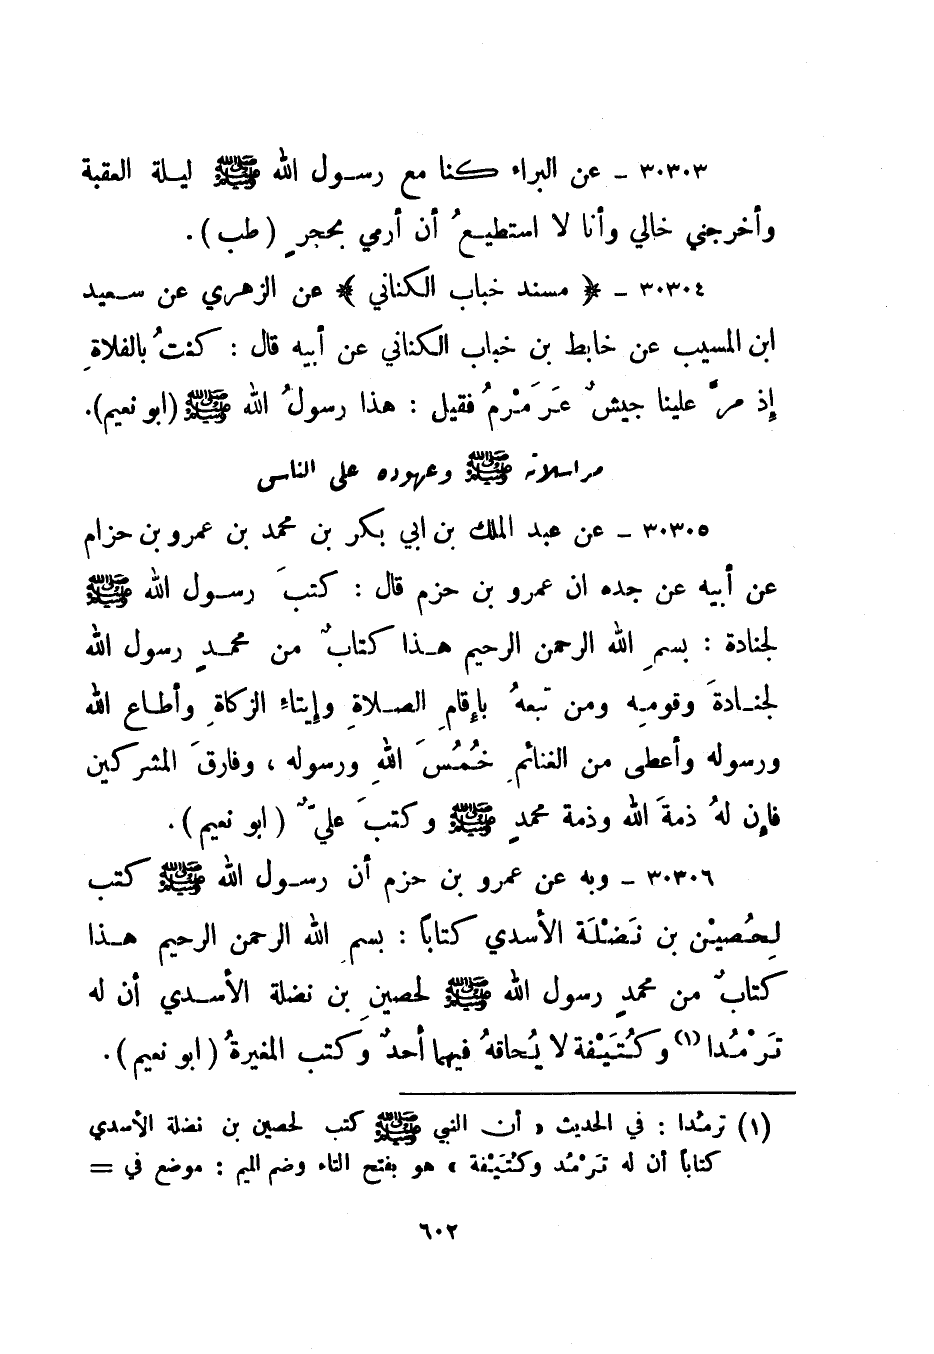 ٣٠٣٠٣ ـ عن البراء كنا مع رسول الله ﷺ ليلة العقبة
وأخرجني خالي وأنا لا استطيعُ أن أرمي بحجرٍ (طب).
٣٠٣٠٤ ـ ﴿ مسند خباب الكناني ﴾ عن الزهري عن سعيد
ابن المسيب عن خابط بن خباب الكناني عن أبيه قال : كنتُ بالفلاةِ
إذ مرَّ علينا جيشٌ عَرَمْرمٌ فقيل : هذا رسولُ الله ﷺ (ابو نعيم).
مراسلاته ﷺ وعهوده على الناس
٣٠٣٠٥ ـ عن عبد الملك بن ابي بكر بن محمد بن عمرو بن حزام
عن أبيه عن جده ان عمرو بن حزم قال : كتبَ رسول الله ﷺ
لجنادة : بسمِ الله الرحمن الرحيم هذا كتابٌ من محمدٍ رسول الله
لجنادةَ وقومِه ومن تبعهُ بإقامِ الصلاةِ وإيتاءِ الزكاةِ وأطاع الله
ورسوله وأعطى من الغنائمِ خُمُسَ اللهِ ورسوله ، وفارقَ المشركين
فإن لهُ ذمةَ الله وذمة محمدٍ ﷺ وكتبَ عليٌّ ( ابو نعيم ).
٣٠٣٠٦ ـ وبه عن عمرو بن حزم أن رسول الله ﷺ كتب
لِحُصيْن بن نَضْلَة الأسدي كتاباً : بسمِ الله الرحمن الرحيم هذا
كتابٌ من محمدٍ رسول الله ﷺ لحصينِ بن نضلة الأسدي أن له
تَرْمُدا (١) وكُتَيْفة لا يُحاقهُ فيهما أحدٌ وكتب المغيرةُ ( ابو نعيم ).
(١) ترمُدا : في الحديث « أن النبي ﷺ كتب لحصين بن نضلة الأسدي
كتاباً أن له تَرْمُد وكُتَيْفة » هو بفتح التاء وضم الميم : موضع في =
٦٠٢